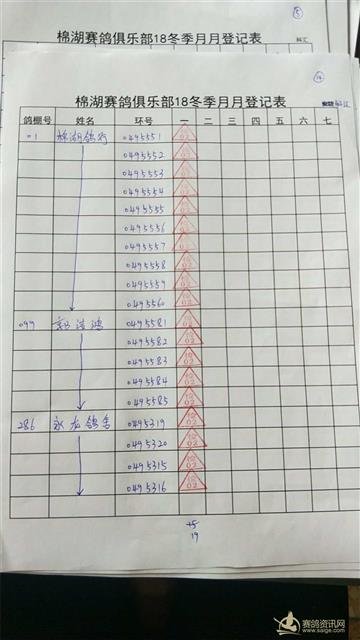 ⑤
棉湖赛鸽俱乐部18冬季月月登记表
⑭
棉湖赛鸽俱乐部18冬季月月登记表
鸽棚号 姓名 环号 一 二 三 四 五 六 七
01 棉湖鸽行 0495551
0495552
0495553
0495554
0495555
0495556
0495557
0495558
0495559
0495560
099 0495581
0495582
0495583
0495584
0495585
286 永龙鸽舍 0495319
0495320
0495315
0495316
+5
19
赛鸽资讯网
www.saige.com